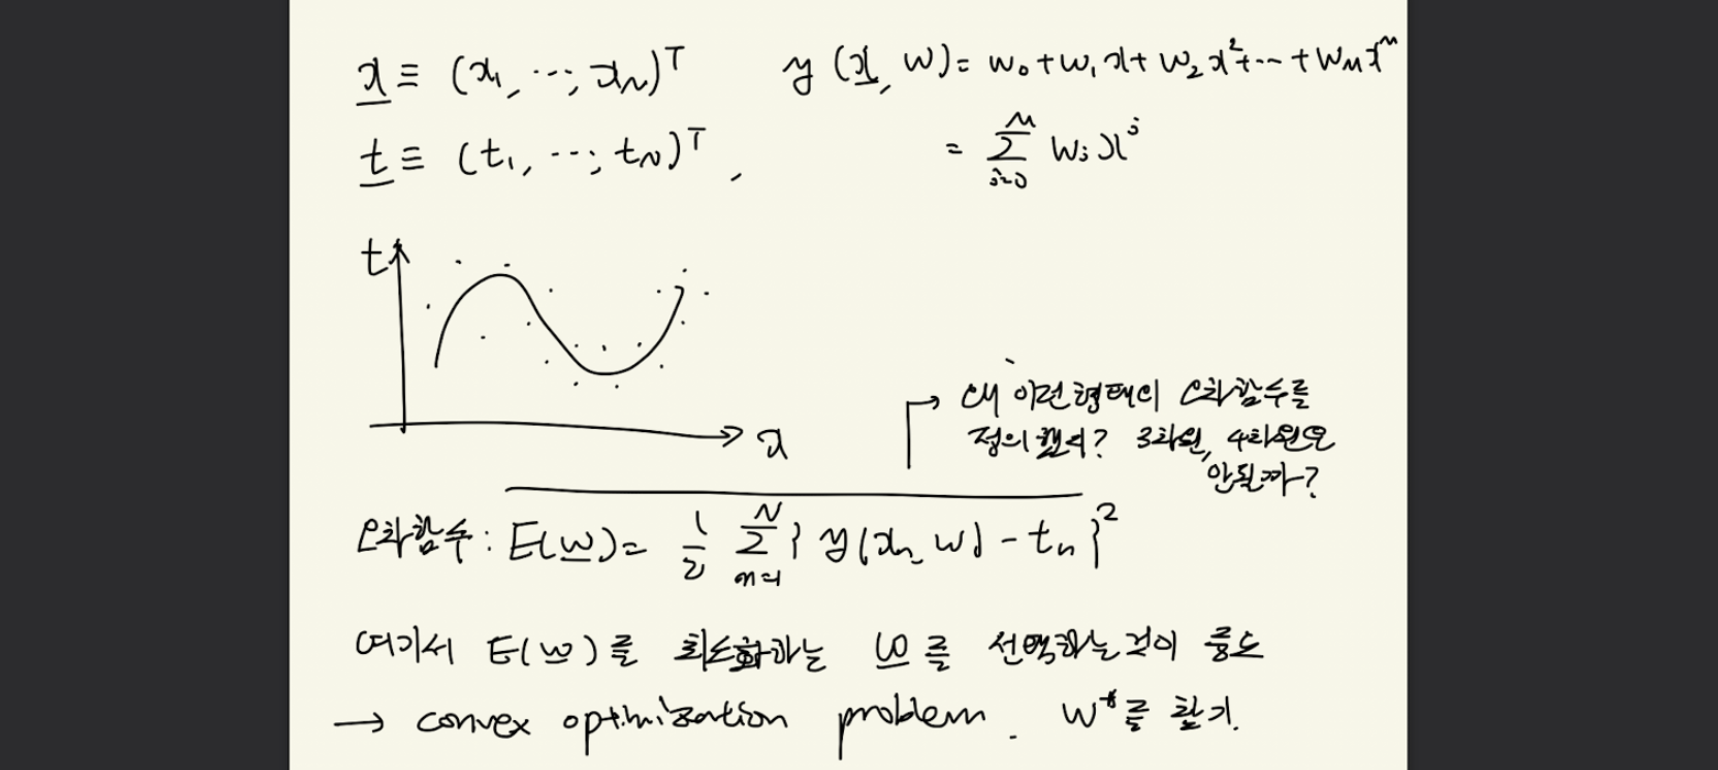 x ≡ (x₁, ⋯, x_N)ᵀ y(x, w) = w₀ + w₁x + w₂x² + ⋯ + w_M x^M
t ≡ (t₁, ⋯, t_N)ᵀ, = Σ_{j=0}^{M} w_j x^j
t
x
왜 이런형태의 오차함수를
정의했지? 3차원, 4차원은
안될까?
오차함수: E(w) = 1/2 Σ_{n=1}^{N} { y(x_n, w) - t_n }²
여기서 E(w)를 최소화하는 w를 선택하는것이
→ convex optimization problem. w*를 찾기.